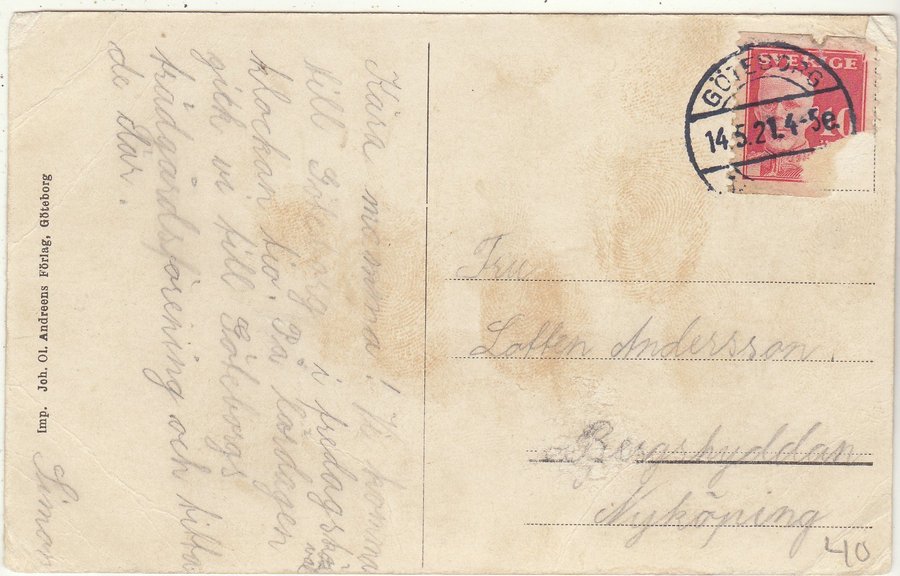 Kära mamma! Vi komma
till Göteborg i fredagskväl
klockan tio. På lördagen
gick vi till Göteborgs
trädgårdsförening och titta
de där.
Simon
Imp. Joh. Ol. Andreens Förlag, Göteborg
SVERIGE
10
GÖTEBORG
14.5.21.4-5e.
Fru
Lotten Andersson.
Bergshyddan
Nyköping
40